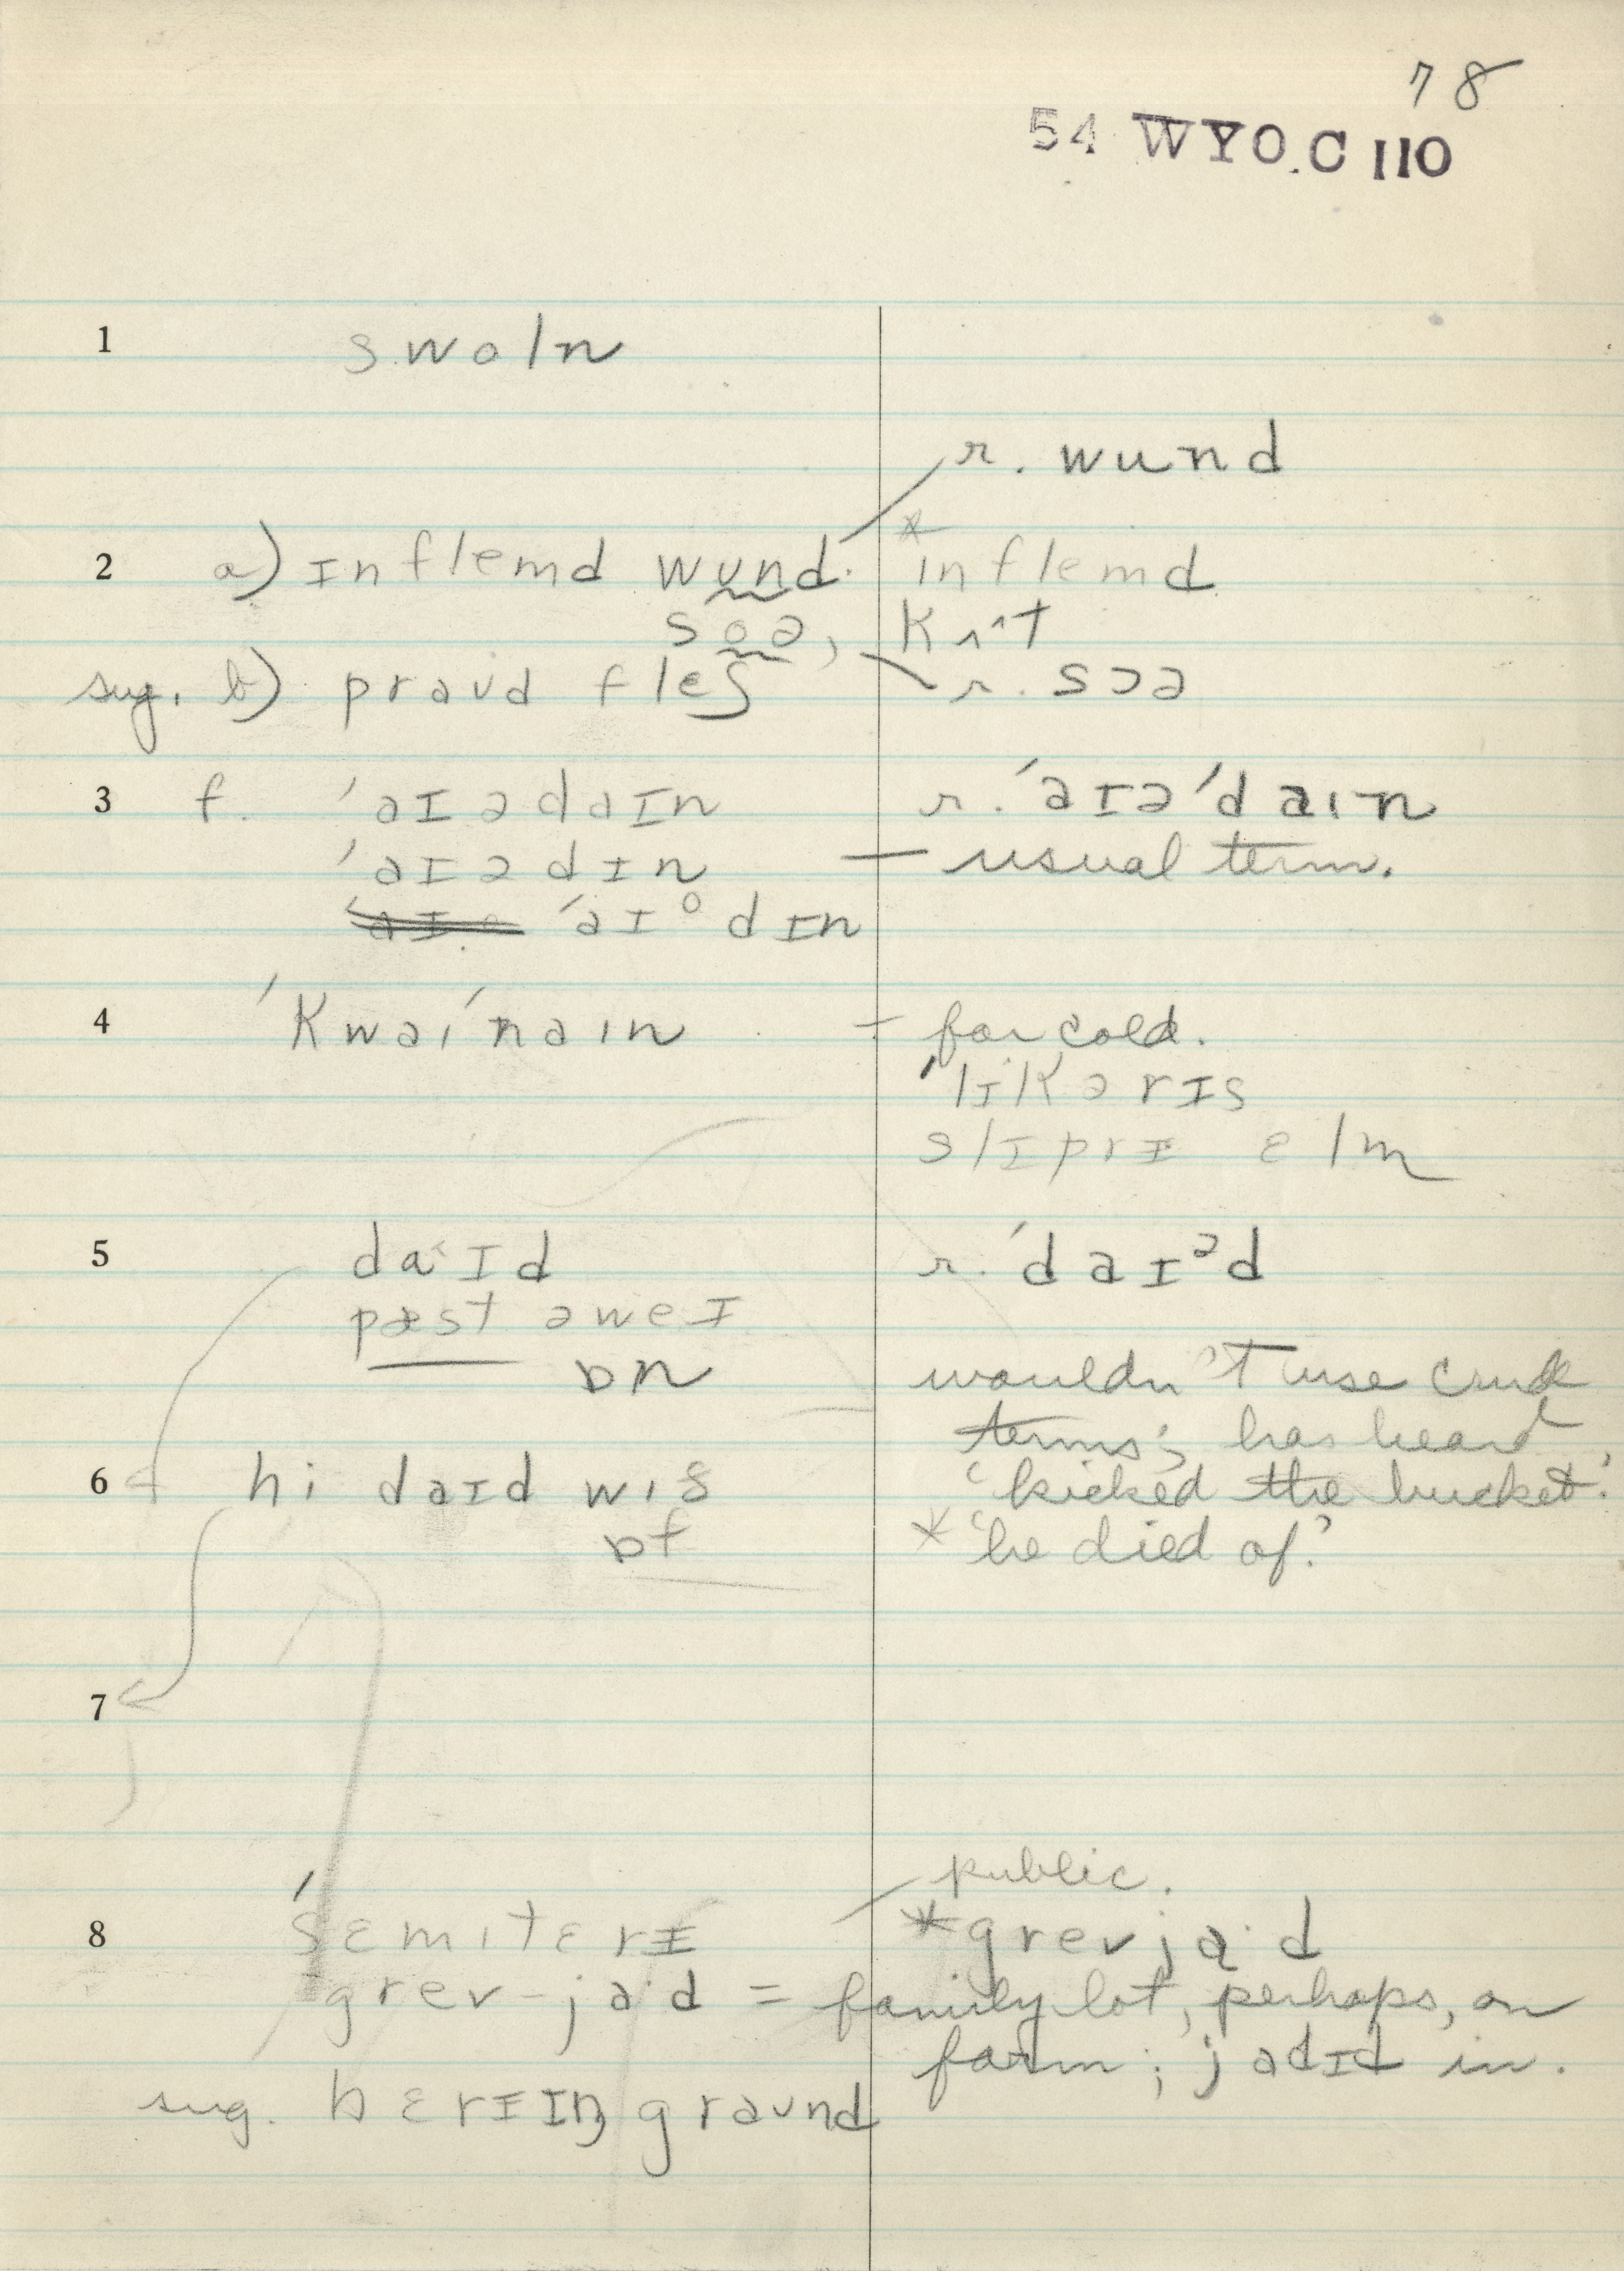 78
54 WYO.C 110
1 swoln
r. wund
2 a) ɪnflemd wund. *inflemd
soə, kʌt
sug. b) praʊd fleʃ r. sɔə
3 f. ˈaɪədaɪn r. ˈaɪəˈdaɪn
ˈaɪədɪn — usual term.
ˈaɪᵒdɪn
4 ˈkwaiˈnain – for cold.
ˈlɪkərɪs
slɪprɪ ɛlm
5 daˑɪd r. ˈdaɪᵊd
pæst əweɪ
ɒn wouldn't use crude
terms; has heard
6 hi daɪd wið 'kicked the bucket.'
ɒf * 'he died of.'
7
public.
8 ˈsɛmitɛrɪ *grevjaˑd
grev-jaˑd = family lot, perhaps, on
farm; jadɪd in.
sug. bɛrɪɪŋ graʊnd